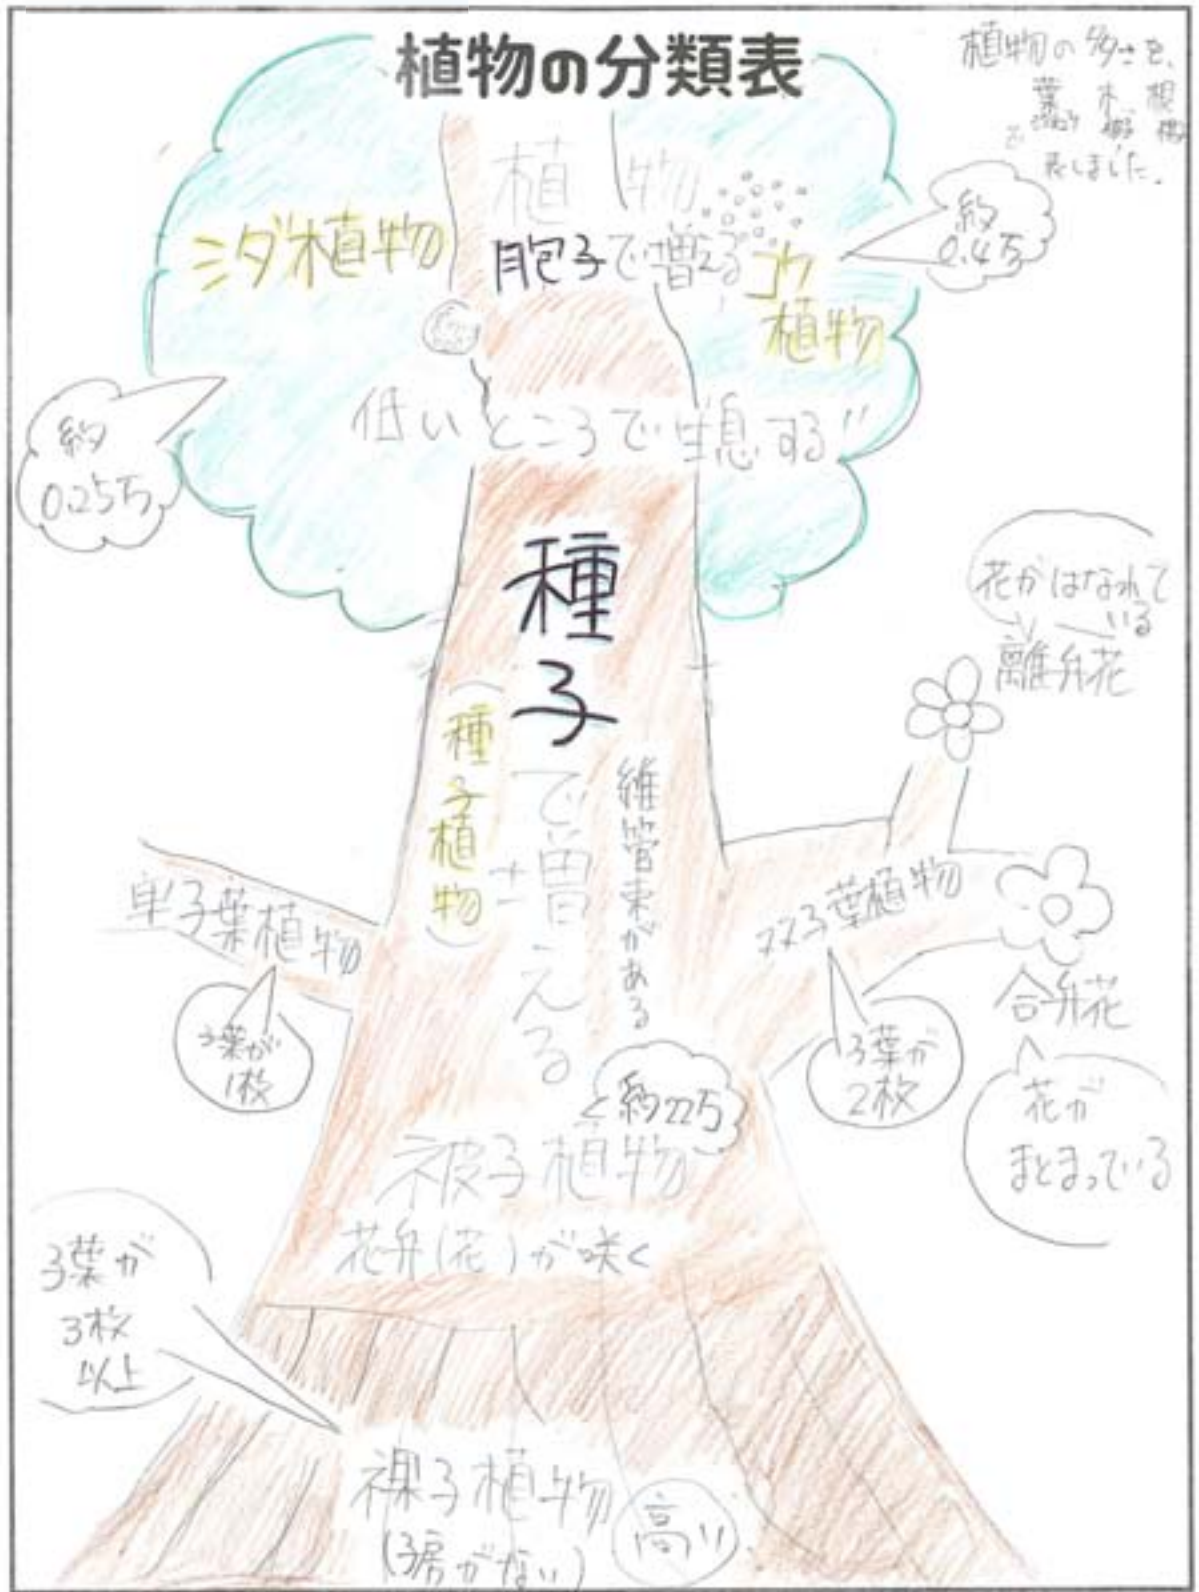 植物の分類表
植物の多さを、
葉 木 根
で
表しました。
植物
シダ植物
胞子で増える
コケ
植物
約
0.4万
低いところで生息する
約
0.25万
種子
で増える
(種子植物)
維管束がある
花がはなれて
いる
離弁花
単子葉植物
子葉が
1枚
双子葉植物
子葉が
2枚
合弁花
花が
まとまっている
約22万
被子植物
花弁(花)が咲く
子葉が
3枚
以上
裸子植物
(子房がない)
高い